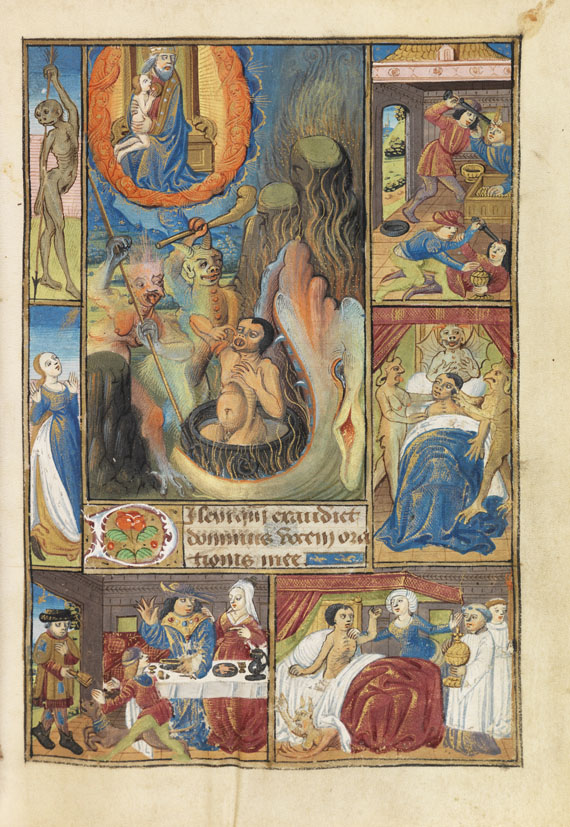 Dilexi quī exaudiet
dominus vocem ora
tionis mee